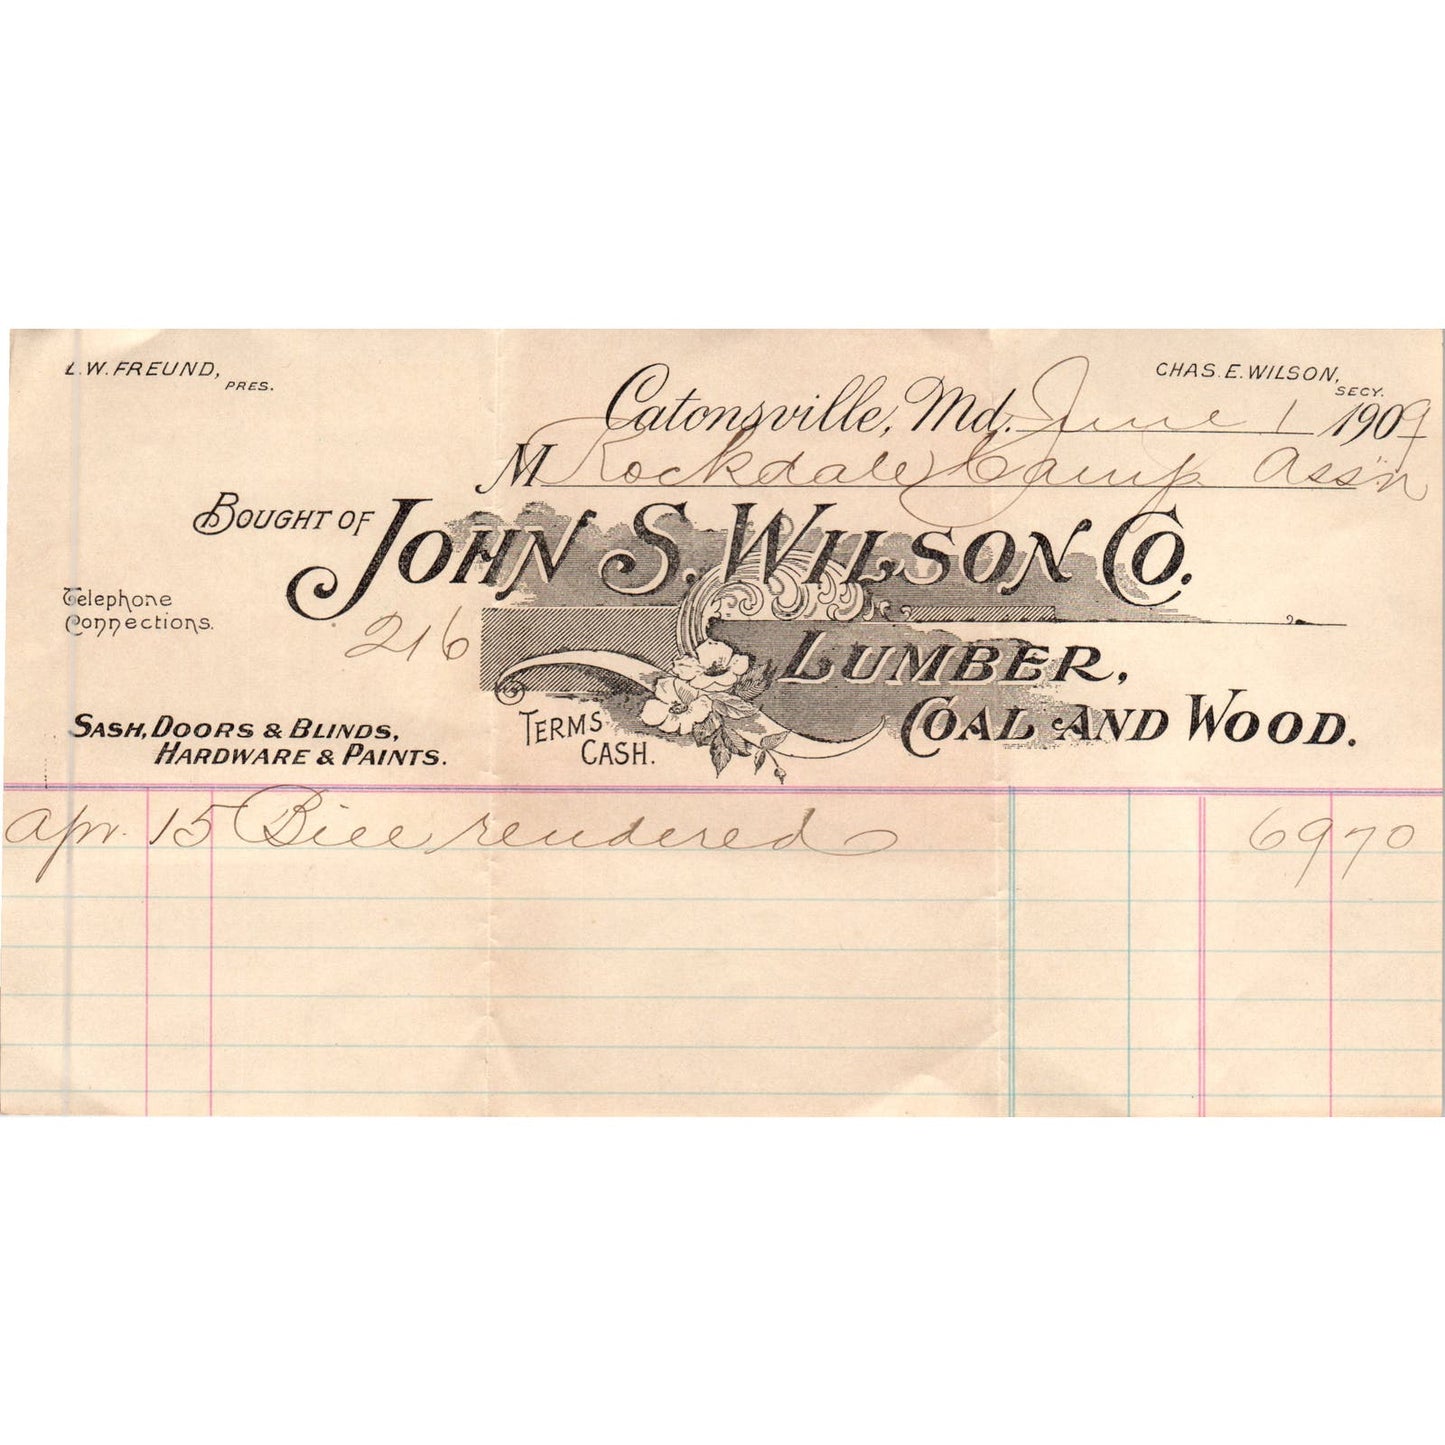 L. W. FREUND, PRES.
CHAS. E. WILSON, SECY.
Catonsville, Md. June 1 1909
M Rockdale Camp Ass'n
BOUGHT OF JOHN S. WILSON CO.
Telephone
Connections.
216
LUMBER,
COAL AND WOOD.
SASH, DOORS & BLINDS,
HARDWARE & PAINTS.
TERMS
CASH.
Apr. 15 Bill rendered 69 70